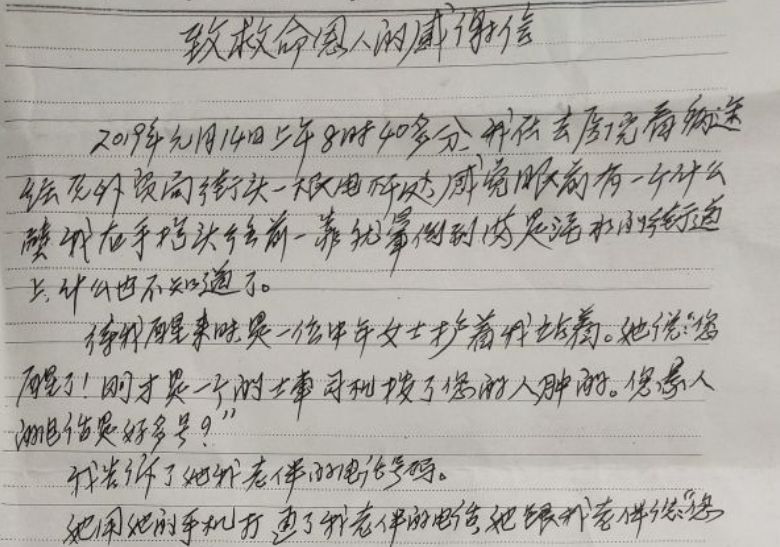 致救命恩人的感谢信
2019年元月14日上午8时40多分,我在去医院看病途
经 外 街头一根电杆处,感觉眼前有一个什么
我右手 头往前一靠就晕倒到满是污水的街道
上,什么也不知道了。
待我醒来时是一位中年女士 着我站着。她说:“您
醒了!刚才是一个的士车司机按了您的人胂的。您家人
的电话是好多号?”
我告诉了她我老伴的电话号码。
她用她的手机打通了我老伴的电话,她跟我老伴说:“您